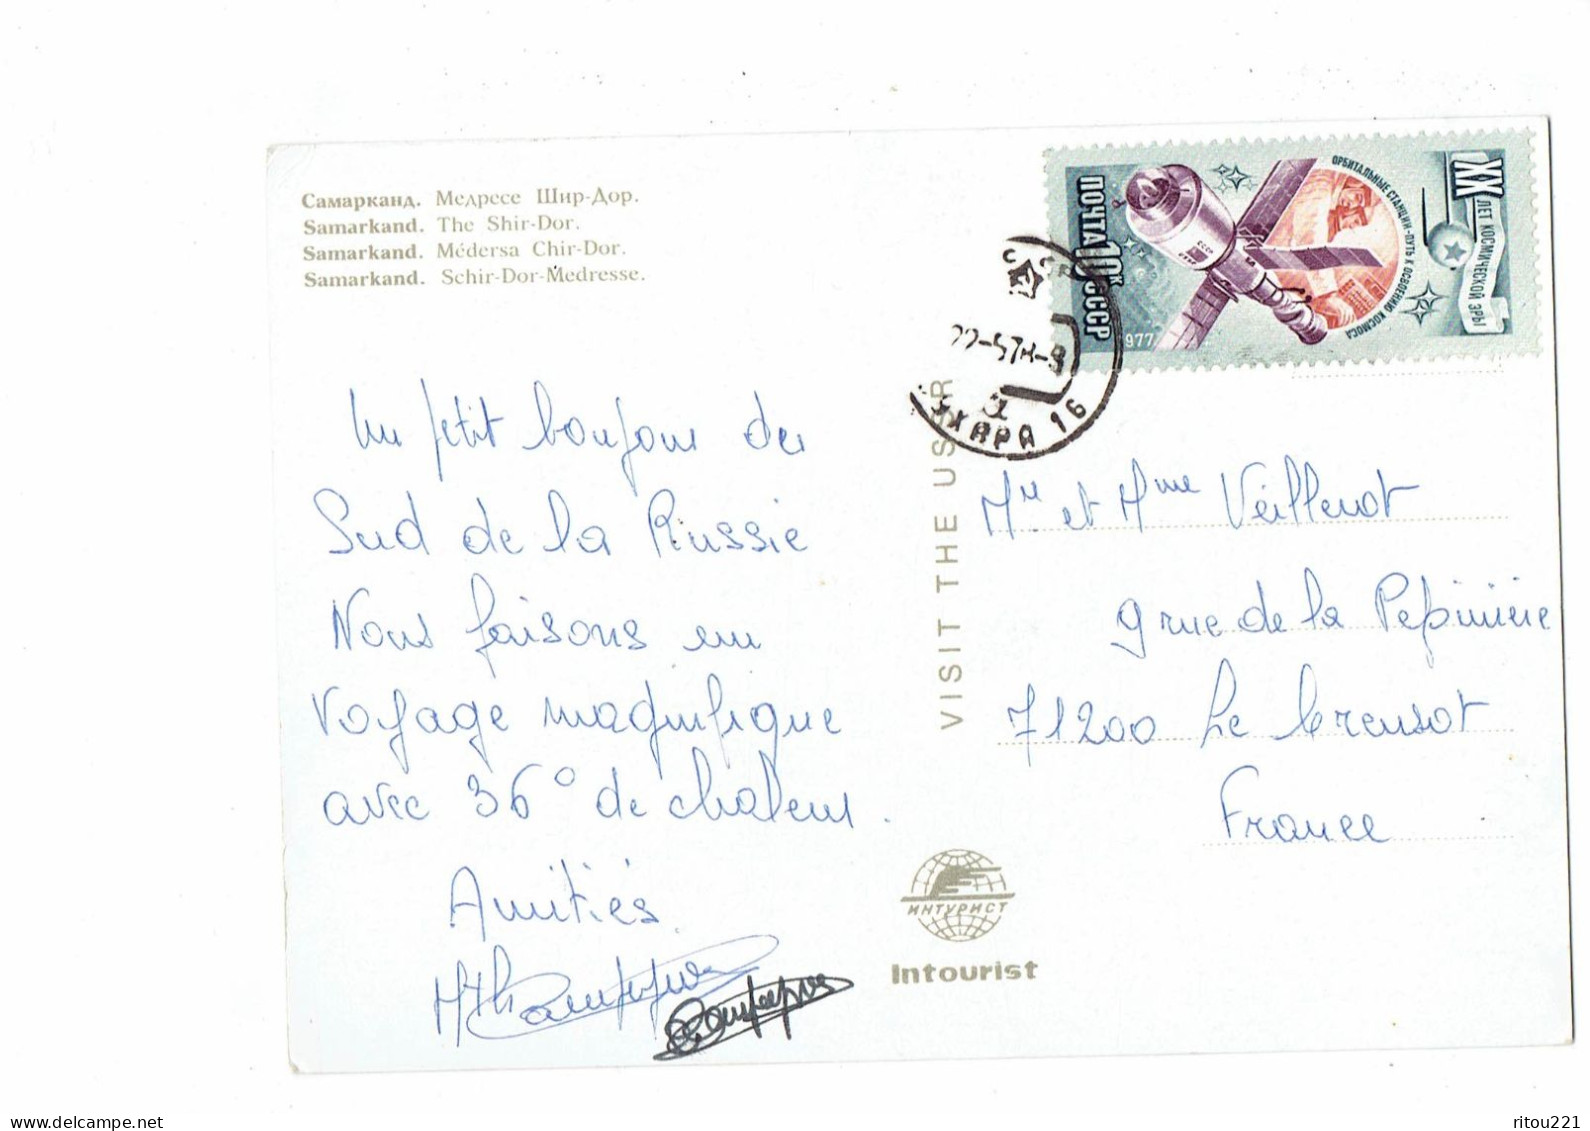 Самарканд. Медресе Шир-Дор.
Samarkand. The Shir-Dor.
Samarkand. Médersa Chir-Dor.
Samarkand. Schir-Dor-Medresse.
Un petit bonjour du
Sud de la Russie
Nous faisons un
voyage magnifique
avec 36° de chaleur.
Amitiés
VISIT THE USSR
ИНТУРИСТ
Intourist
ПОЧТА 10к СССР
1977
ОРБИТАЛЬНЫЕ СТАНЦИИ-ПУТЬ К ОСВОЕНИЮ КОСМОСА
XX
ЛЕТ КОСМИЧЕСКОЙ ЭРЫ
СССР
БУХАРА 16
Mr et Mme Veillenot
9 rue de la Pépinière
71200 Le Creusot
France
ritou221